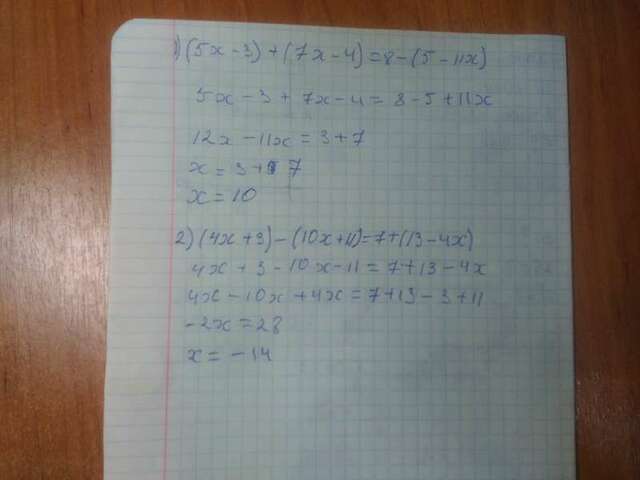 1) (5x - 3) + (7x - 4) = 8 - (5 - 11x)
5x - 3 + 7x - 4 = 8 - 5 + 11x
12x - 11x = 3 + 7
x = 3 + 7
x = 10
2) (4x + 3) - (10x + 11) = 7 + (13 - 4x)
4x + 3 - 10x - 11 = 7 + 13 - 4x
4x - 10x + 4x = 7 + 13 - 3 + 11
-2x = 28
x = -14